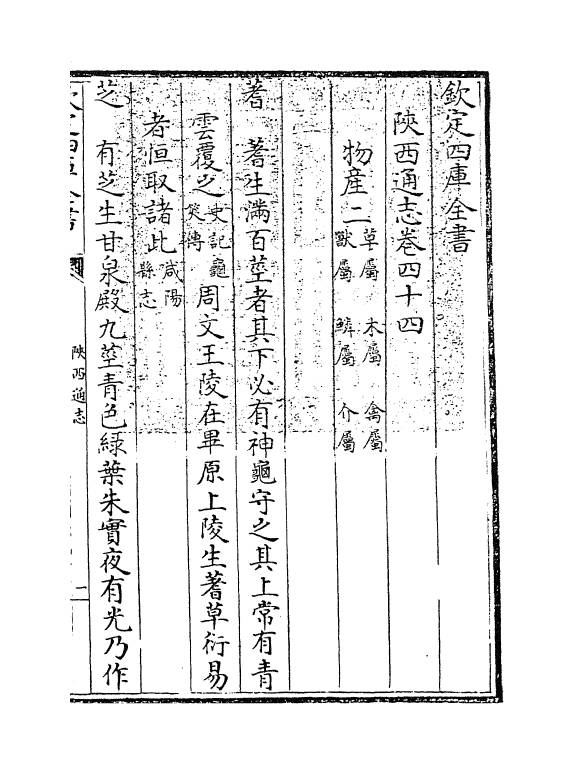 欽定四庫全書
陝西通志卷四十四
物産二 草屬 木屬 禽屬
獸屬 鱗屬 介屬
蓍 蓍生滿百莖者其下必有神龜守之其上常有青
雲覆之 史記龜
筴傳 周文王陵在畢原上陵生蓍草衍易
者恒取諸此 咸陽
縣志
芝 有芝生甘泉殿九莖青色緑葉朱實夜有光乃作
陝西通志